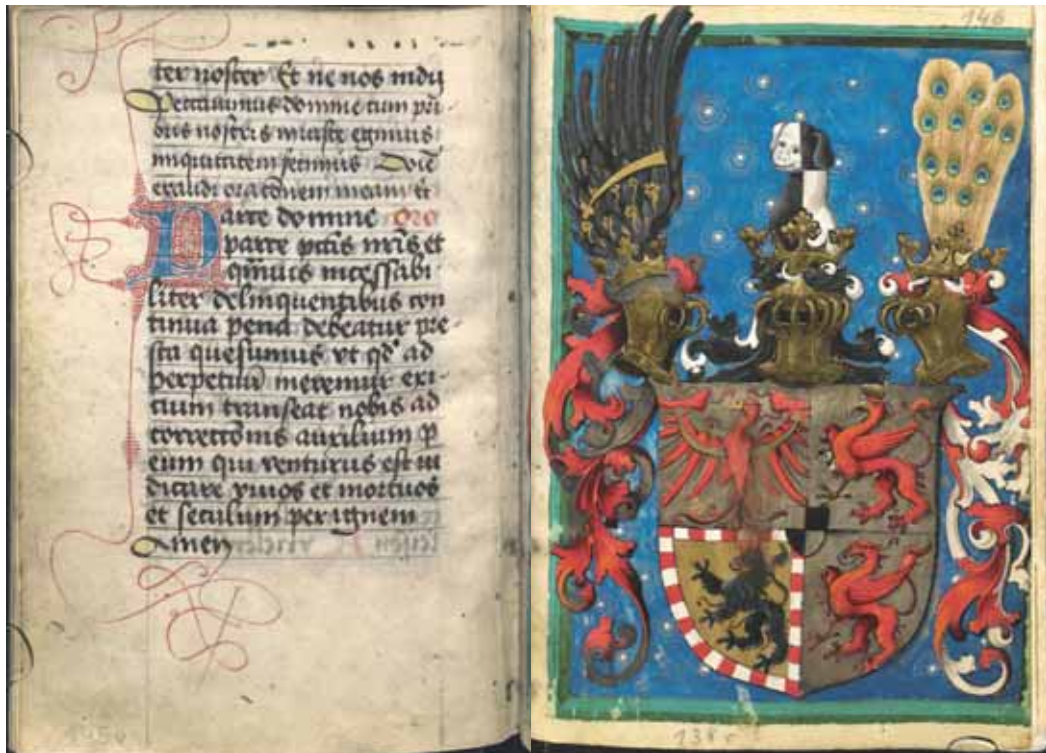 ter noster Et ne nos indu
Peccauimus domine cum pri
bus nostris iniuste egimus
iniquitatem fecimus Dne
exaudi orationem meam et
Parce domine Oro
parce pctis nris et
qmuis incessabi
liter delinquentibus con
tinua pena debeatur pre
sta quesumus vt qd ad
perpetuu meremur exi
cium transeat nobis ad
correctionis auxilium p
eum qui venturus est iu
dicare viuos et mortuos
et seculum per ignem
Amen
145v
146
138r